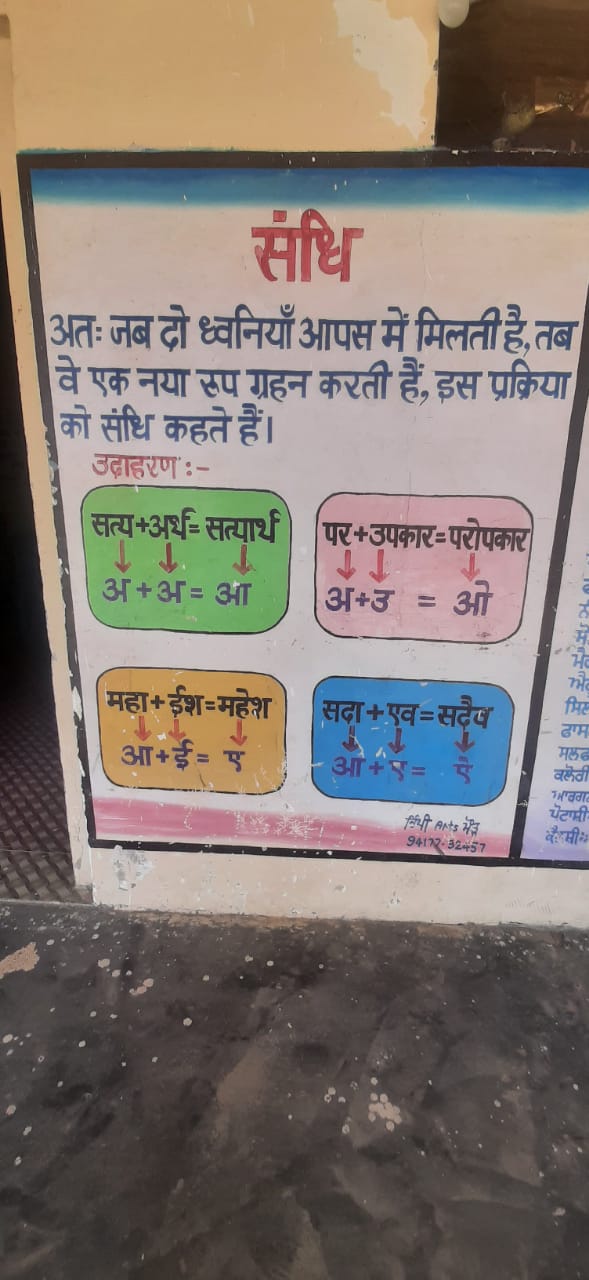 संधि
अतः जब दो ध्वनियाँ आपस में मिलती है, तब
वे एक नया रूप ग्रहन करती हैं, इस प्रक्रिया
को संधि कहते हैं।
उदाहरण :-
सत्य+अर्थ= सत्यार्थ
अ + अ = आ
पर+उपकार=परोपकार
अ+उ = ओ
महा+ईश=महेश
आ+ई= ए
सदा+एव=सदैव
आ+ए= ऐ
Arts
94177-32457